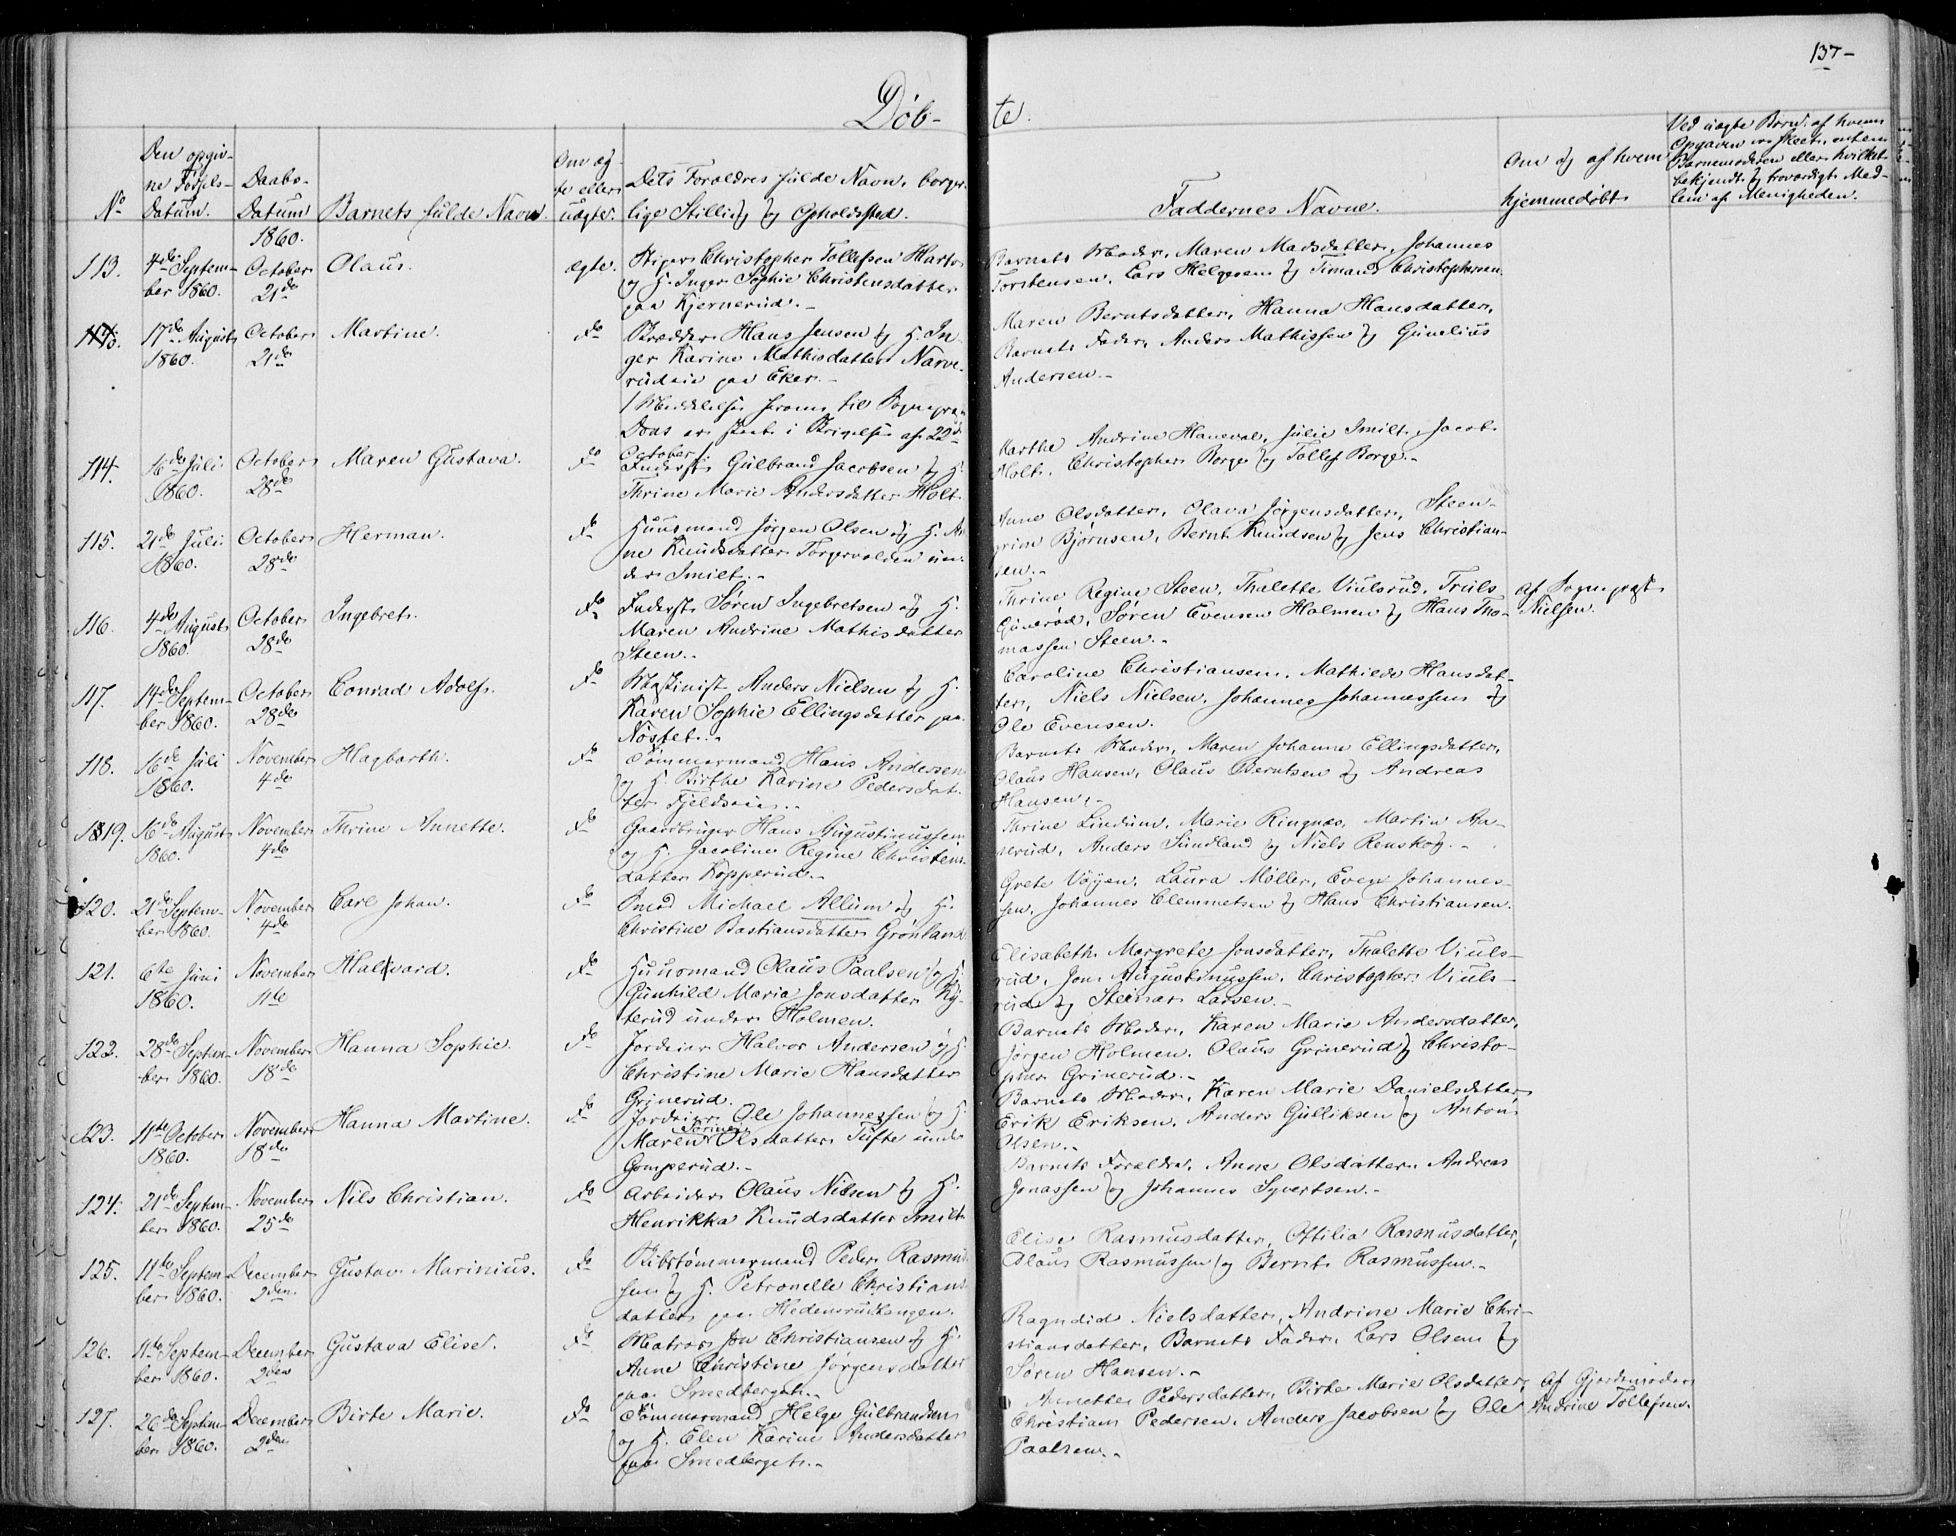 137-
Døb-
te.
No
Den opgiv-
ne Fødsels-
Datum.
Daabs-
Datum
1860.
Barnets fulde Navn.
Om æg-
te eller
uægte.
Dets Forældres fulde Navn, borger-
lige Stilling og Opholdssted.
Faddernes Navne.
Om og af hvem
hjemmedøbt
Ved uægte Børn, af hvem
Opgaven er skeet, enten
Barnemoderen eller hvilket
bekjendt og troværdigt Med-
lem af Menigheden.
113.
4de Septem-
ber 1860.
October
21de
Olaus.
ægte.
Stiger Christopher Tollefsen
og H. Inger Sophie Christensdatter
paa Kjernerud.-
Barnets Moder, Maren Madsdatter, Johannes
Torstensen, Lars Helgesen og Simand Christophersen.
17de August
1860.
October
21de
Martine.
do
Hans Jensen og H. In-
ger Karine Mathisdatter Narve-
rudeie paa Eker.-
October
Maren Berntsdatter, Hanna Hansdatter,
Barnets Fader, Anders Mathissen og Gunelius
Andersen.-
114.
16de Juli
1860.
October
28de
Maren Gustava.
do
Inderst Gulbrand Jacobsen og H.
Thrine Marie Andersdatter Holt.
Marthe Andrine Haneval, Julie Smilt, Jacob
Holt, Christopher Borge og Tollef Borge.-
115.
21de Juli
1860.
October
28de
Herman.
do
Huusmand Jørgen Olsen og H. An-
ne Knudsdatter Torgervolden un-
der Smilt.-
Anne Olsdatter, Olava Jørgensdatter, Steen-
grim Bjørnsen, Bernt Knudsen og Jens Christian-
sen.-
116.
4de August
1860.
October
28de
Ingebret.
do
Inderst Søren Ingebretsen og H.
Maren Andrine Mathisdatter
Steen.-
Thrine Regine Steen, Thalette Viulsrud, Truls
Gunerød, Søren Evensen Holmen og Hans Tho-
massen Steen.-
af Sognepræst
Nielsen.
117.
14de Septem-
ber 1860.
October
28de
Conrad Adolf.
do
Maskinist Anders Nielsen og H.
Karen Sophie Ellingsdatter paa
Nøstet.-
Caroline Christiansen, Mathilde Hansdat-
ter, Niels Nielsen, Johannes Johannessen og
Ole Evensen.
118.
16de Juli
1860.
November
4de
Hagbarth.
do
Tømmermand Hans Andersen
og H. Birthe Karine Pedersdat-
ter Fjeldseie.-
Barnets Moder, Maren Johanne Ellingsdatter,
Olaus Hansen, Olaus Berntsen og Andreas
Hansen.-
119.
16de August
1860.
November
4de
Thrine Annette.
do
Gaardbruger Hans Augustinussen
og H. Jacoline Regine Christens-
datter Kopperud.-
Thrine Lindum, Marie Ringnæs, Martin Aa-
serud, Anders Sundland og Niels Renskog.-
120.
21de Septem-
ber 1860.
November
4de
Carl Johan.
do
Smed Michael Allum og H.
Christine Bastiansdatter Grønland
Grete Vøyen, Laura Møller, Even Johannes-
sen, Johannes Clemmetsen og Hans Christiansen.
121.
6te Juni
1860.
November
11te
Halvard.
do
Huusmand Olaus Paalsen og H.
Gunhild Maria Jonsdatter Ky-
terud under Holmen.
Elisabeth Margrete Jonsdatter, Thalette Viuls-
rud, Jon Augustinussen, Christopher Viuls-
rud og Steenar Larsen.-
122.
28de Septem-
ber 1860.
November
18de
Hanna Sophie.
do
Jordeier Halvor Andersen og H.
Christine Marie Hansdatter
Grinerud.
Barnets Moder, Karen Marie Andersdatter,
Jørgen Holmen, Olaus Grinerud og Christo-
pher Grinerud.-
123.
11te October
1860.
November
18de
Hanna Martine.
do
Jordeier Ole Johannessen og H.
Maren Olsdatter Tufte under
Gomperud.-
Barnets Moder, Karen Marie Danielsdatter,
Erik Eriksen, Anders Gulliksen og Anton
Olsen.-
124.
21de Septem-
ber 1860.
November
25de
Nils Christian.
do
Arbeider Olaus Nilsen og H.
Henrikka Knudsdatter Smilt
Barnets Forældre, Anne Olsdatter, Andreas
Jonassen og Johannes Syvertsen.-
125.
11te Septem-
ber 1860.
December
2den
Gustav Marinius.
do
Skibstømmermand Peder Rasmus-
sen og H. Petronelle Christians-
datter paa Hedensrudtangen.
Elise Rasmusdatter, Ottilia Rasmusdatter,
Olaus Rasmussen og Bernt Rasmussen.-
126.
11te Septem-
ber 1860.
December
2den
Gustava Elise.
do
Matros Jon Christiansen og H.
Anne Christine Jørgensdatter
paa Smedberget.-
Ragndid Nielsdatter, Andrine Marie Chri-
stiansdatter, Barnets Fader, Lars Olsen og
Søren Hansen.-
127.
26de Septem-
ber 1860.
December
2den
Birte Marie.
do
Tømmermand Helge Gulbrandsen
og H. Elen Karine Andersdatter
paa Smedberget.-
Annette Pedersdatter, Birte Marie Olsdatter,
Christian Pedersen, Anders Jacobsen og Ole
Paalsen.-
af Gjordemoder
Andrine Tollefsen.